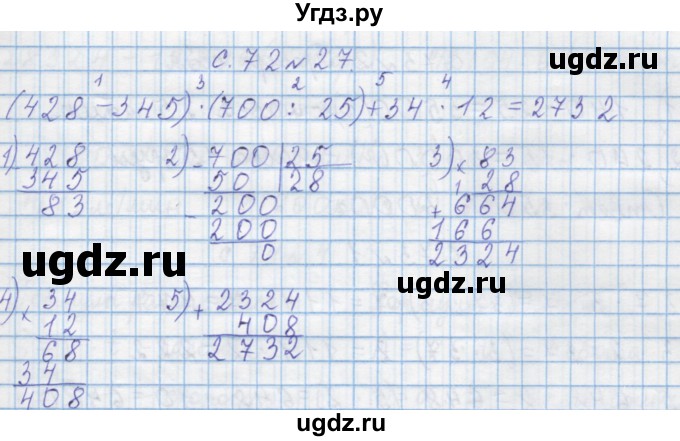 Угдз.ру
с. 72 № 27.
1 3 2 5 4
(428 - 345) · (700 : 25) + 34 · 12 = 2732
1) 428 2) - 700 | 25 3) × 83
345 50 | 28 28
83 - 200 + 664
200 166
0 2324
4) × 34 5) + 2324
12 408
68 2732
34
408
ugdz.ru
ugdz.ru
ugdz.ru
ugdz.ru
ugdz.ru
ugdz.ru